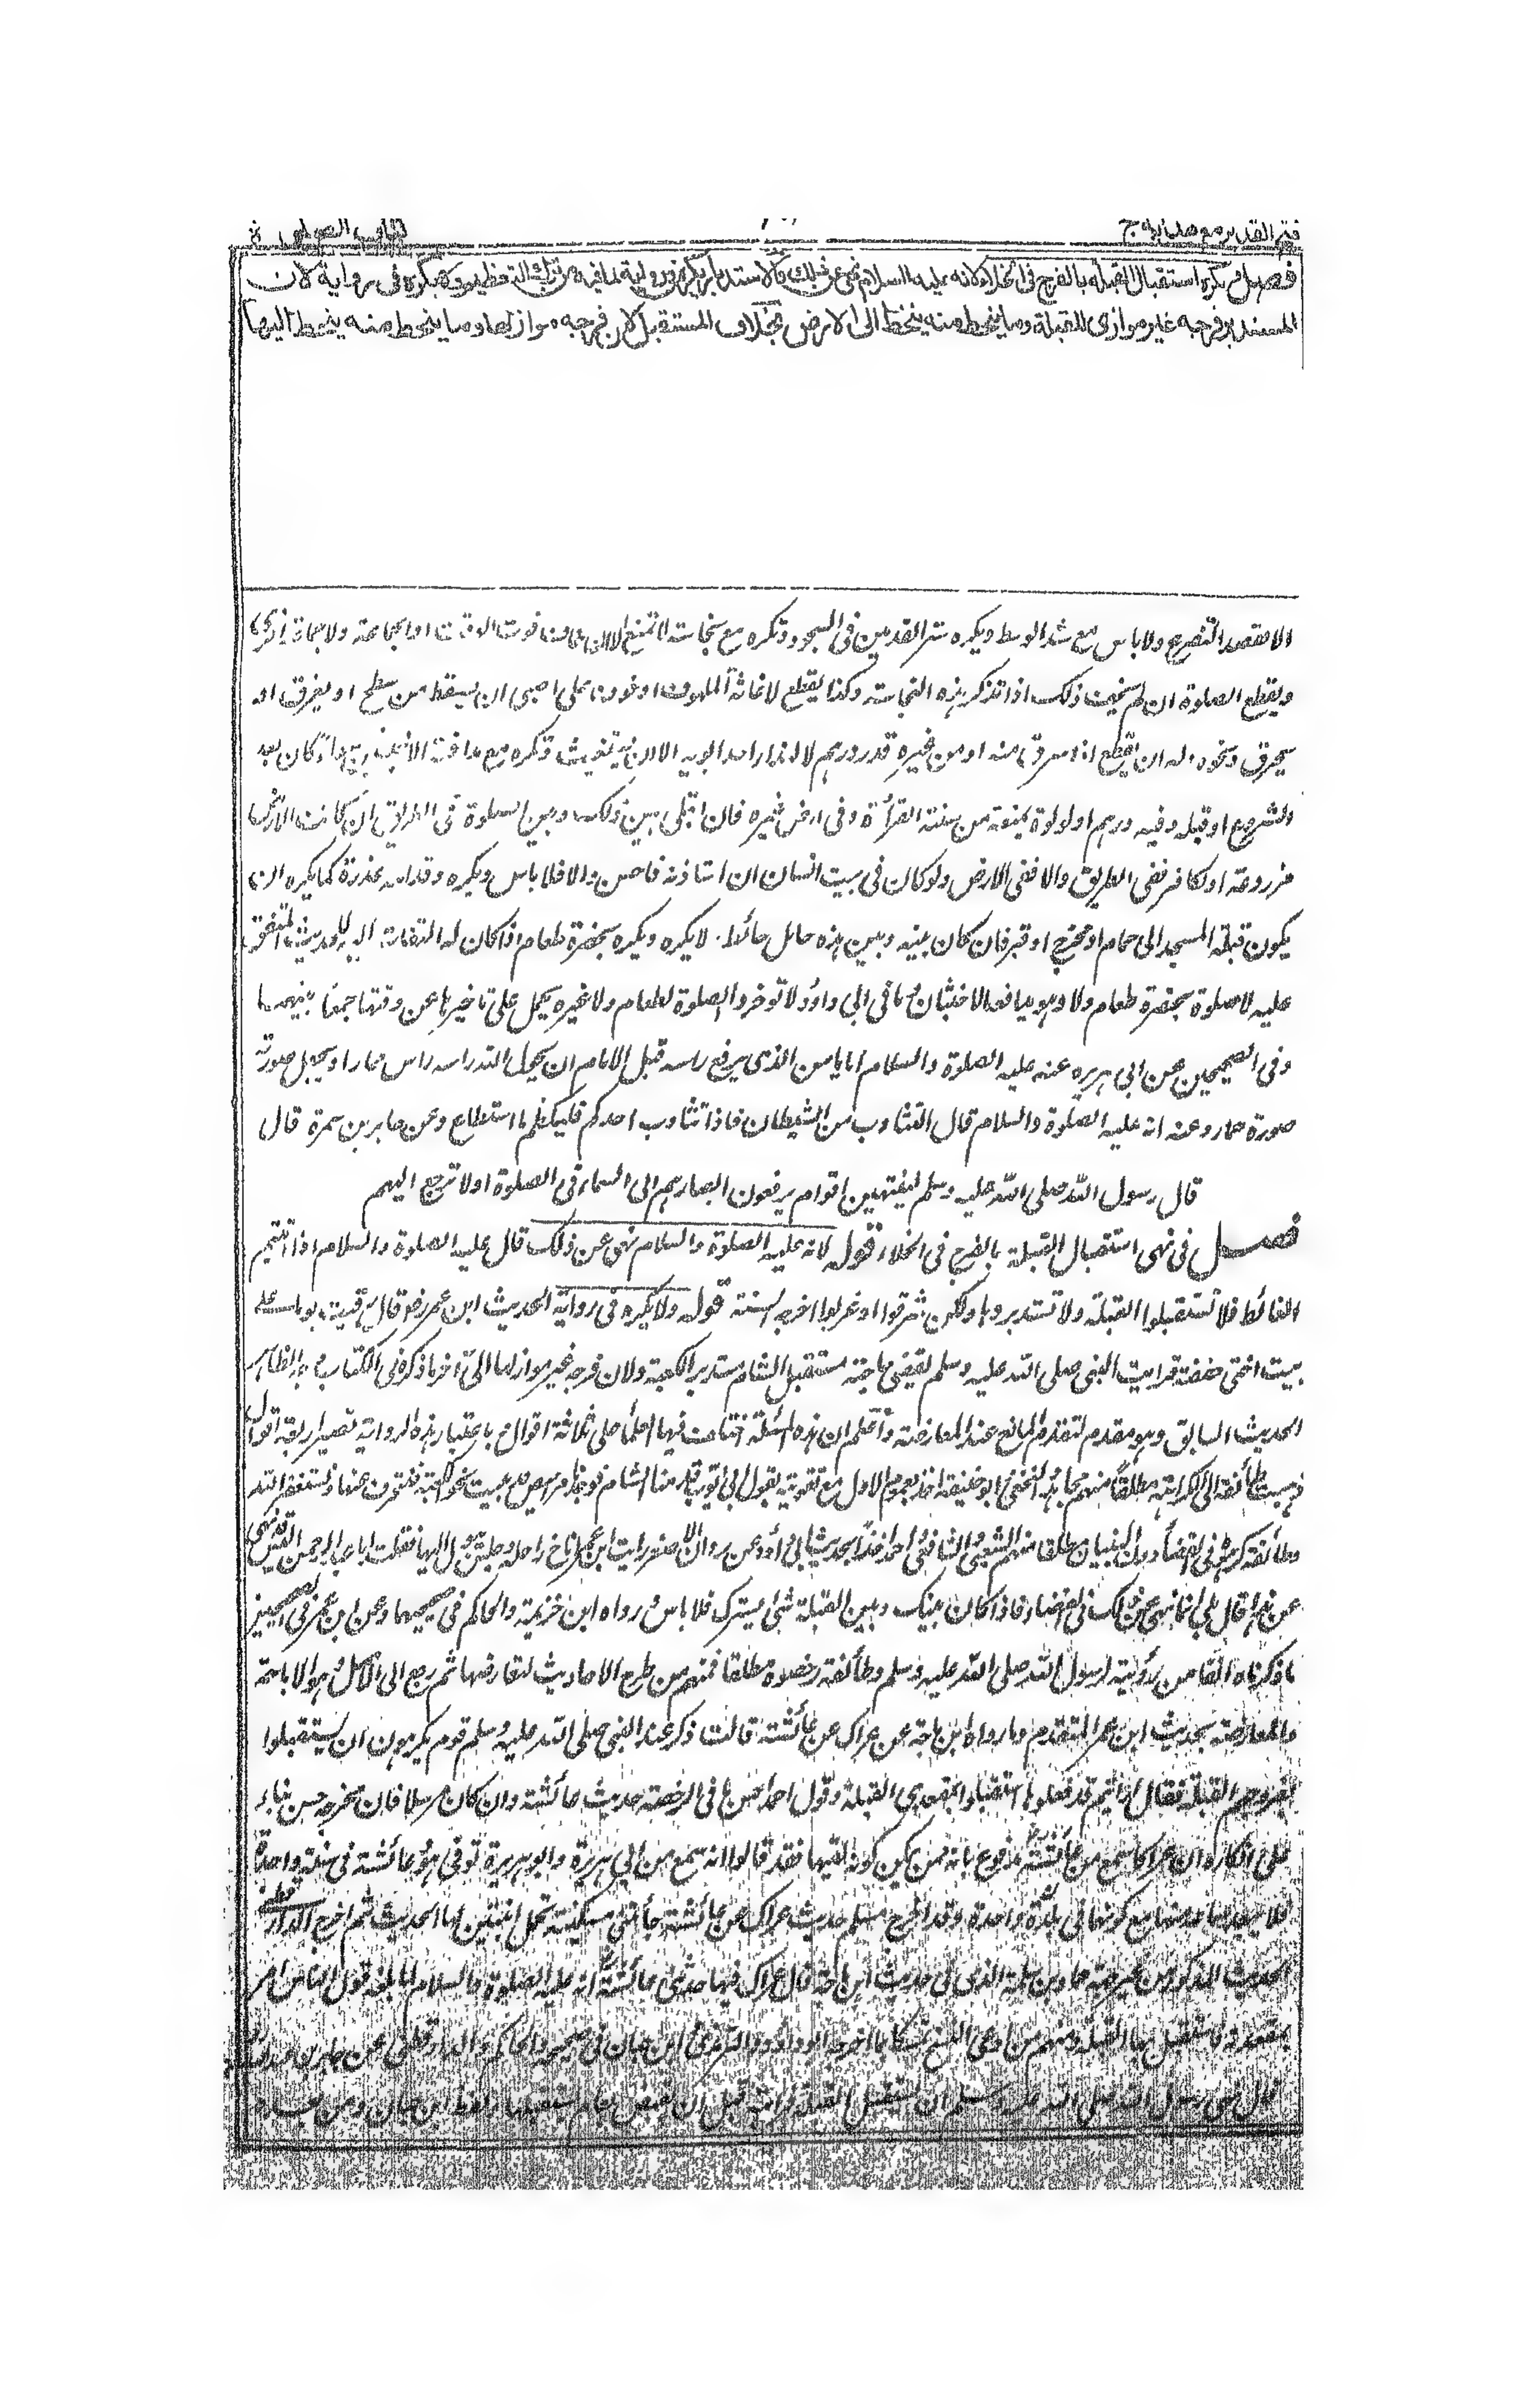 فتح القدير مع هدايه ج
كتاب الصلوة
فصل ويكره استقبال القبلة بالفرج في الخلاء لانه عليه السلام نهى عن ذلك والاستدبار يكره في رواية لما فيه من ترك التعظيم ولا يكره في رواية لان
المستدبر فرجه غير موازى للقبلة وما ينحط منه ينحط الى الارض بخلاف المستقبل لان فرجه مواز لها وما ينحط منه ينحط اليها
الا لقصد التضرع ولا باس مع شد الوسط ويكره ستر القدمين في السجود وتكره مع نجاسة لا تمنع الا ان خاف فوت الوقت او الجماعة ولا جماعة اخرى
ويقطع الصلوة ان لم يخف ذلك اذا تذكر هذه النجاسة وكذا يقطع لاغاثة الملهوف او خوف على صبي ان يسقط من سطح او يغرق او
يحرق ونحوه وله ان يقطع اذا سرق منه او من غيره قدر درهم لا لنداء احد ابويه الا ان تكره مع مدافعة الاخبثين كان بعد
الشروع او قبله وفيه درهم او لولوة يمنعه من سنة القرأة وفي ارض غيره فان ابتلى بين ذلك وبين الصلوة في الطريق ان كانت الارض
مزروعة او لكافر ففي الطريق والا ففي الارض ولو كان في بيت انسان ان استاذنه فاحسن والا فلا باس ويكره وقدامه عذرة كما يكره ان
يكون قبلة المسجد الى حمام او مخرج او قبر فان كان بينه وبين هذه حائل حائط لا يكره ويكره بحضرة طعام اذا كان له التفات اليه للحديث المتفق
عليه لا صلوة بحضرة طعام ولا وهو يدافعه الاخبثان وما في ابي داود لا توخر والصلوة لطعام ولا غيره يحمل على تاخيرها عن وقتها جمعا بينهما
وفي الصحيحين عن ابي هريره عنه عليه الصلوة والسلام اما يامن الذي يرفع راسه قبل الامام ان يحول الله راسه راس حمار او يجعل صورته
صورة حمار وعنه انه عليه الصلوة والسلام قال التثاوب من الشيطان فاذا تثاوب احدكم فليكظم ما استطاع وعن جابر بن سمرة قال
قال رسول الله صلى الله عليه وسلم لينتهين اقوام يرفعون ابصارهم الى السماء في الصلوة او لا ترجع اليهم
فصل في نهى استقبال القبلة بالفرج في الخلاء قوله لانه عليه الصلوة والسلام نهى عن ذلك قال عليه الصلوة والسلام اذا اتيتم
الغائط فلا تستقبلوا القبلة ولا تستدبروها ولكن شرقوا او غربوا اخرجه الستة قوله ولا يكره في رواية لحديث ابن عمر رض قال رقيت يوما على
بيت اختي حفصة فرايت النبي صلى الله عليه وسلم يقضي حاجته مستقبل الشام مستدبر الكعبة ولان فرجه غير مواز لها الى آخر ما ذكره في الكتاب
الحديث السابق وهو مقدم لتقدم المانع عند المعارضة واعلم ان هذه المسئلة اختلفت فيها العلماء على ثلاثة اقوال وباعتبار هذه الرواية تصير اربعة اقوال
ذهبت طائفة الى الكراهة مطلقا منهم مجاهد والنخعي وابو حنيفة اخذا بعموم الاول مع تقويته بقول ابي ايوب قدمنا الشام فوجدنا مراحيض بنيت نحو الكعبة فننحرف عنها ونستغفر الله
وطائفة كرهوه في الفضاء دون البنيان مطلقا منهم الشعبي والشافعي واحمد اخذا بحديث ابي داود عن مروان الاصفر رايت ابن عمر اناخ راحلته وجلس يبول اليها فقلت ابا عبد الرحمن اليس قد نهى
عن هذا قال بلى انما نهى عن ذلك في الفضاء فاذا كان بينك وبين القبلة شئ يسترك فلا باس ورواه ابن خزيمة والحاكم في صحيحهما وعن ابن عمر في الصحيحين
ما ذكرناه آنفا من رؤيته لرسول الله صلى الله عليه وسلم وطائفة رخصوه مطلقا فمنهم من طرح الاحاديث لتعارضها ثم رجع الى الاصل وهو الاباحة
والمعارضة بحديث ابن عمر المتقدم وما رواه ابن ماجة عن عراك عن عائشة قالت ذكر عند النبي صلى الله عليه وسلم قوم يكرهون ان يستقبلوا
بفروجهم القبلة فقال اراهم قد فعلوها استقبلوا بمقعدي القبلة وقول احمد احسن ما في الرخصة حديث عائشة وان كان مرسلا فان مخرجه حسن بناء
على انكاره ان عراكا سمع من عائشة مدفوع بانه ممن يمكن كونه لقيها فقد قالوا انه سمع من ابي هريرة وابو هريرة توفي هو وعائشة في سنة واحدة
فلا يبعد سماعه منها مع كونهما في بلدة واحدة وقد اخرج مسلم حديث عراك عن عائشة جاءتني مسكينة تحمل ابنتين لها الحديث ثم اخرج الدارقطني
الحديث المذكور من غير جهة حماد بن سلمة الذي في حديث ابن ماجة قال عراك فيها حدثتني عائشة انه عليه الصلوة والسلام لما بلغه قول الناس امر
بمقعدته فاستقبل بها القبلة ومنهم من ادعى النسخ تمسكا بما اخرجه ابو داود والترمذي وابن حبان في صحيحه والحاكم والدارقطني عن جابر بن عبد الله
قال نهى رسول الله صلى الله عليه وسلم ان نستقبل القبلة فرايته قبل ان يقبض بعام يستقبلها ولفظ ابن حبان